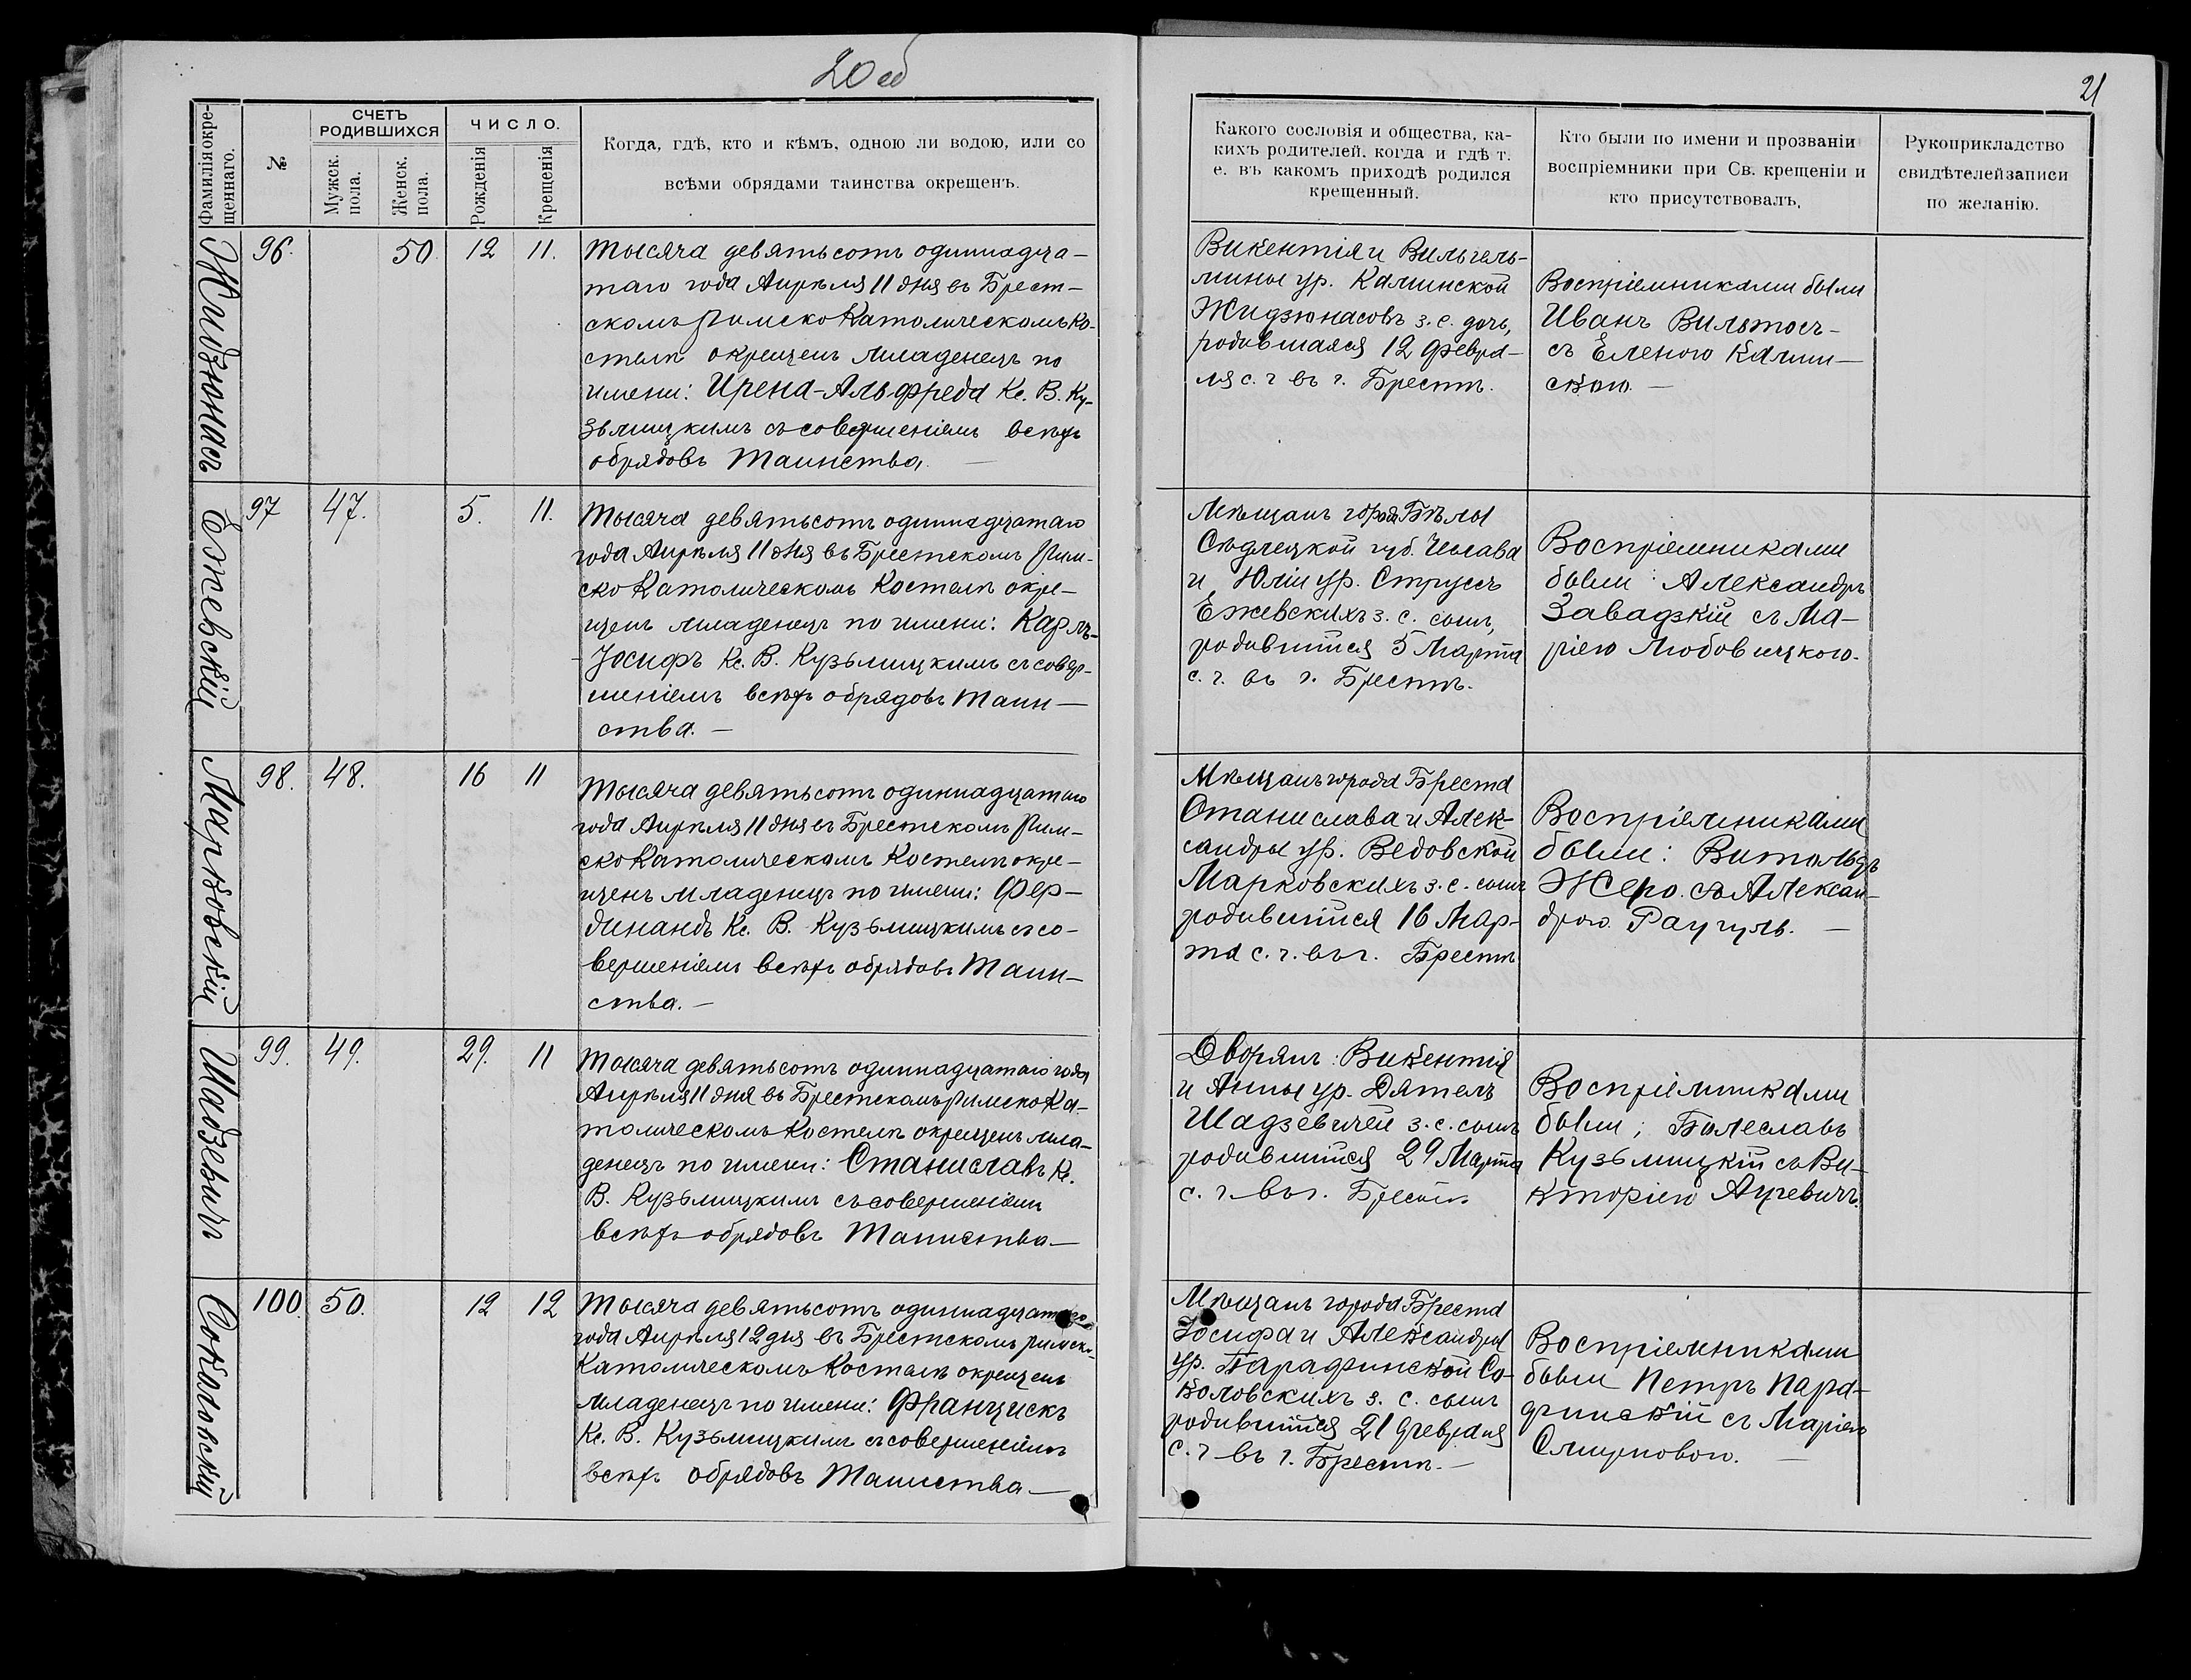 20 об
Фамилія окре-
щеннаго.
№
СЧЕТЪ
РОДИВШИХСЯ
Мужск.
пола.
Женск.
пола.
ЧИСЛО.
Рожденія
Крещенія
Когда, гдѣ, кто и кѣмъ, одною ли водою, или со
всѣми обрядами таинства окрещенъ.
Жидзюнасъ
96.
50
12
11.
Тысяча девятьсотъ одиннадца-
таго года Апрѣля 11 дня въ Брест-
скомъ Римско Католическомъ Ко-
стелѣ окрещенъ младенецъ по
имени: Ирена-Альфреда Кс. В. Ку-
зьмицкимъ съ совершеніемъ всѣхъ
обрядовъ Таинства. —
Ежевскій
97
47.
5.
11.
Тысяча девятьсотъ одиннадцатаго
года Апрѣля 11 дня въ Брестскомъ Рим-
ско Католическомъ Костелѣ окре-
щенъ младенецъ по имени: Карлъ-
-Іосифъ Кс. В. Кузьмицкимъ съ совер-
шеніемъ всѣхъ обрядовъ Таин-
ства. —
Марковскій
98.
48.
16
11
Тысяча девятьсотъ одиннадцатаго
года Апрѣля 11 дня въ Брестскомъ Рим-
ско Католическомъ Костелѣ окре-
щенъ младенецъ по имени: Фер-
динандъ Кс. В. Кузьмицкимъ съ со-
вершеніемъ всѣхъ обрядовъ Таин-
ства. —
Шадзевичъ
99.
49.
29.
11
Тысяча девятьсотъ одиннадцатаго года
Апрѣля 11 дня въ Брестскомъ Римско Ка-
толическомъ Костелѣ окрещенъ мла-
денецъ по имени: Станиславъ Кс.
В. Кузьмицкимъ съ совершеніемъ
всѣхъ обрядовъ Таинства —
Соколовскій
100.
50.
12
12
Тысяча девятьсотъ одиннадцатаго
года Апрѣля 12 дня въ Брестскомъ Римско-
Католическомъ Костелѣ окрещенъ
младенецъ по имени: Францискъ
Кс. В. Кузьмицкимъ съ совершеніемъ
всѣхъ обрядовъ Таинства —
21
Какого сословія и общества, ка-
кихъ родителей, когда и гдѣ т.
е. въ какомъ приходѣ родился
крещенный.
Кто были по имени и прозваніи
воспріемники при Св. крещеніи и
кто присутствовалъ.
Рукоприкладство
свидѣтелей записи
по желанію.
Викентія и Вильгель-
мины ур. Калинской
Жидзюнасовъ з. с. дочь,
родившаяся 12 Февра-
ля с. г въ г. Брестѣ.
Воспріемниками были
Иванъ Вильтосъ
съ Еленою Калин-
скою. —
Мѣщанъ города Бѣлы
Сѣдлецкой губ. Чеслава
и Юліи ур. Струсъ
Ежевскихъ з. с. сынъ,
родившійся 5 Марта
с. г. въ г. Брестѣ.
Воспріемниками
были: Александръ
Завадзкій съ Ма-
ріею Любовицкою.
Мѣщанъ города Бреста
Станислава и Алек-
сандры ур. Ведовской
Марковскихъ з. с. сынъ
родившійся 16 Мар-
та с. г. въ г. Брестѣ
Воспріемниками
были: Витольдъ
Жеро съ Алексан-
дрою Раугуль. —
Дворянъ: Викентія
и Анны ур. Дятелъ
Шадзевичей з. с. сынъ
родившійся 29 Марта
с. г. въ г. Брестѣ.
Воспріемниками
были; Болеславъ
Кузьмицкій съ Ви-
кторіею Ацевичъ.
Мѣщанъ города Бреста
Іосифа и Александры
ур. Парафинской Со-
коловскихъ з. с. сынъ
родившійся 21 Февраля
с. г въ г. Брестѣ. —
Воспріемниками
были Петръ Пара-
финскій съ Маріею
Смирновою. —